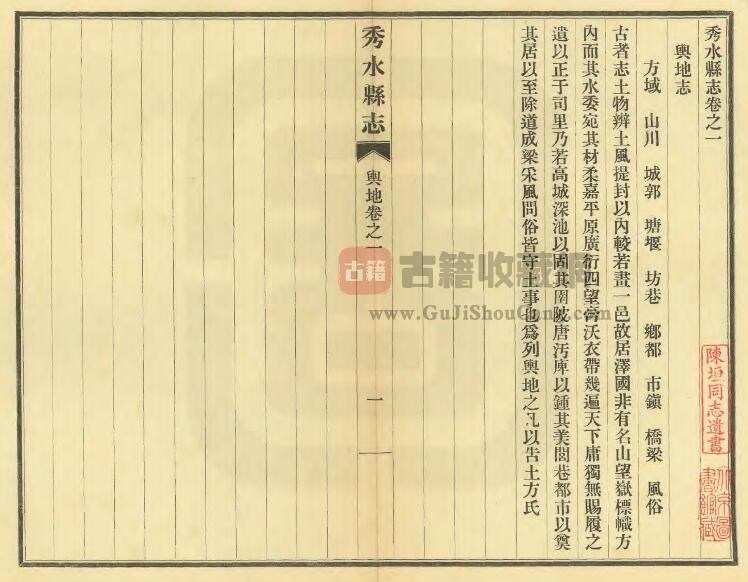 秀水縣志卷之一
輿地志
方域 山川 城郭 塘堰 坊巷 鄉都 市鎮 橋梁 風俗
古者志土物辨土風提封以內較若畫一邑故居澤國非有名山望嶽標幟方
內而其水委宛其材柔嘉平原廣衍四望膏沃衣帶幾遍天下庸獨無賜履之
遺以正于司里乃若高城深池以固其圉陂唐汚庳以鍾其美閭巷都市以奠
其居以至除道成梁采風問俗皆守土事也爲列輿地之凡以告土方氏
秀水縣志
輿地卷之一
一
古籍
古籍收藏網
www.GuJiShouCang.com
陳垣同志遺書
北京圖書館藏